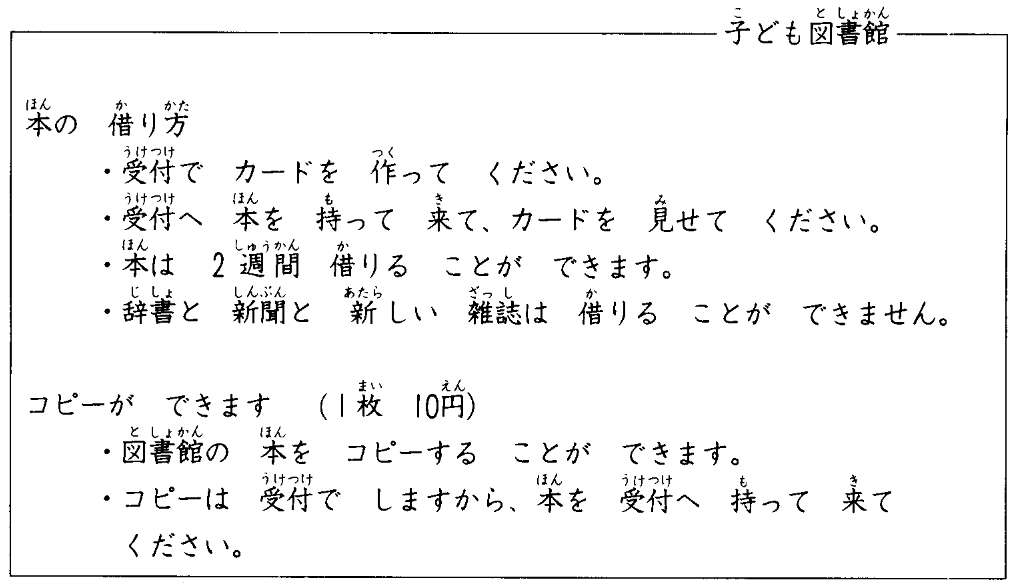 子ども図書館
本の 借り方
・受付で カードを 作って ください。
・受付へ 本を 持って 来て、カードを 見せて ください。
・本は 2週間 借りる ことが できます。
・辞書と 新聞と 新しい 雑誌は 借りる ことが できません。
コピーが できます (1枚 10円)
・図書館の 本を コピーする ことが できます。
・コピーは 受付で しますから、本を 受付へ 持って 来て
ください。